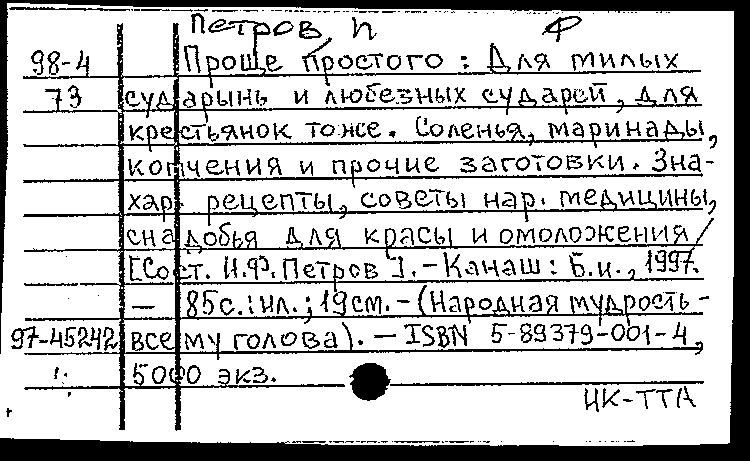 Петров, И Ф
98-4 Проще простого : Для милых
73 сударынь и любезных сударей, для
крестьянок тоже. Соленья, маринады,
копчения и прочие заготовки. Зна-
хар. рецепты, советы нар. медицины,
снадобья для красы и омоложения /
[Сост. И.Ф. Петров]. - Канаш : Б.и., 1997.
— 85с. : ил. ; 19см. - (Народная мудрость -
97-45242 всему голова). — ISBN 5-89379-001-4,
5000 экз.
НК-ТТА